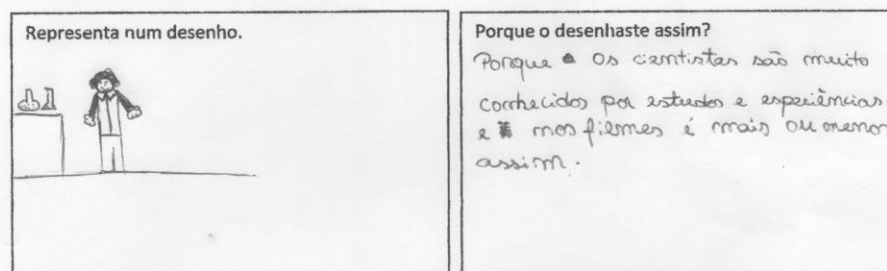 Representa num desenho.
Porque o desenhaste assim?
Porque os cientistas são muito
conhecidos por estudos e especiências
e nos fiemes é mais ou menos
assim.